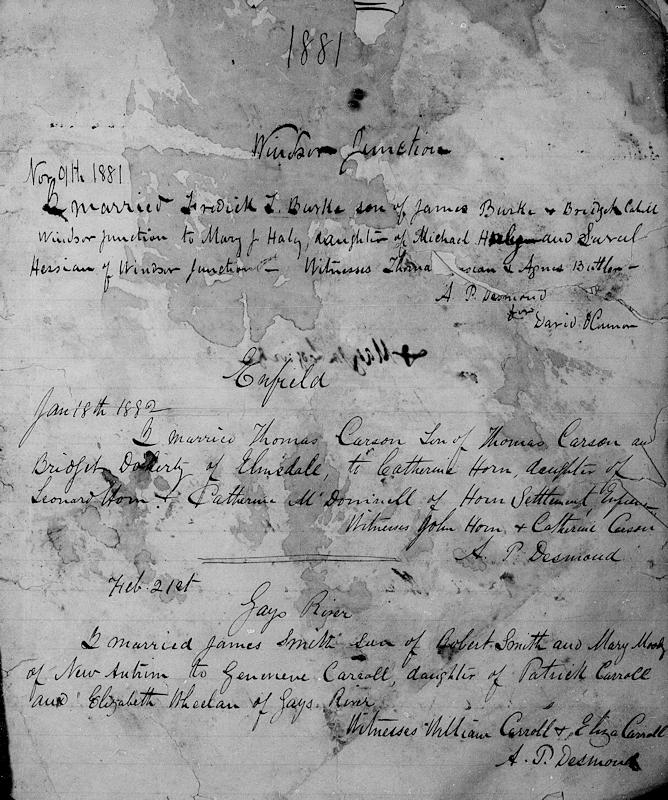 1881
Windsor Junction
Nov 9th 1881
I married Fredick L. Burke son of James Burke & Bridget Cahill
Windsor Junction to Mary J Haly, daughter of Michael Haly and Sarah
Hessian of Windsor Junction - Witnesses & Agnes Butler -
A. P. Desmond
for
David O'Connor
Enfield
Jan 18th 1882
I married Thomas Carson Son of Thomas Carson an
Bridget Doherty of Elmsdale, to Catherine Horn, daughter of
Leonard Horn & Catherine McDonnell of Horn Settlement
Witnesses John Horn & Catherine Carson
A. P. Desmond
Feb. 21st
Gays River
I married James Smith son of Robert Smith and Mary
of New Antrim to Geneneve Carroll, daughter of Patrick Carroll
and Elizabeth Wheelan of Gays River
Witnesses William Carroll & Eliza Carroll
A. P. Desmond